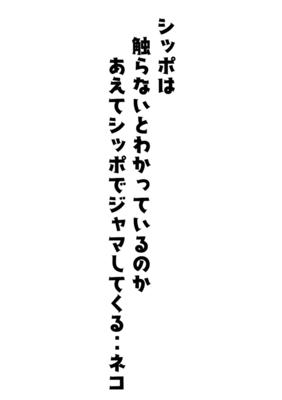 シッポは
触らないとわかっているのか
あえてシッポでジャマしてくる‥ネコ